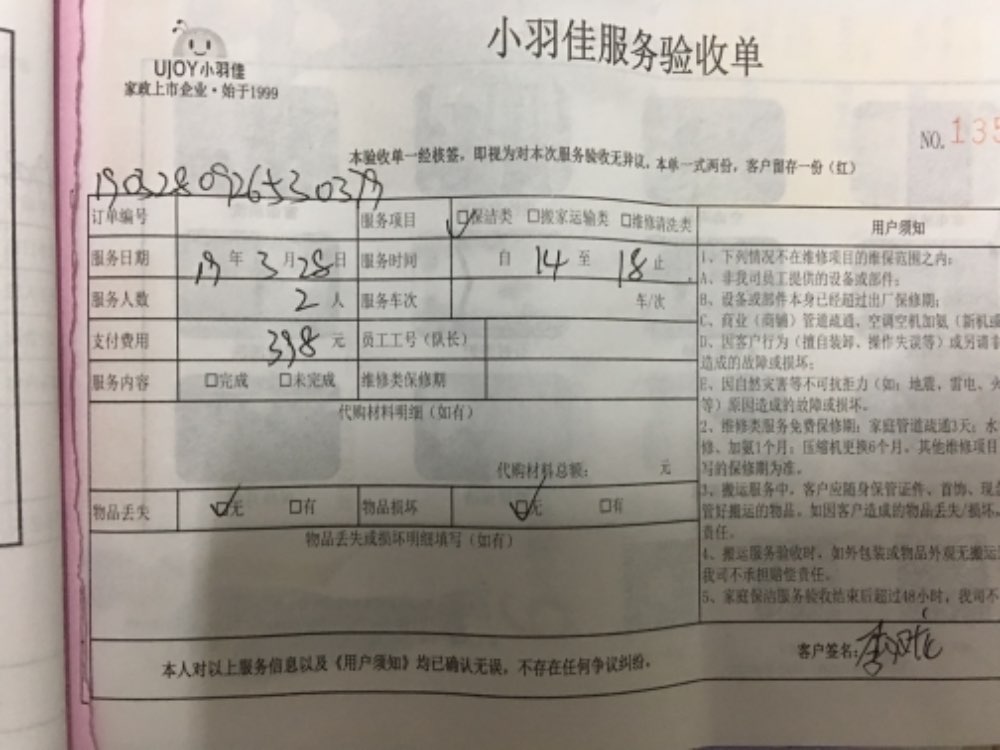 小羽佳服务验收单
UJOY小羽佳
家政上市企业·始于1999
NO.135
本验收单一经核签，即视为对本次服务验收无异议，本单一式两份，客户留存一份（红）
订单编号 服务项目 □保洁类 □搬家运输类 □维修清洗类
服务日期 19年3月28日 服务时间 自 14 至 18 止
服务人数 2 人 服务车次 车/次
支付费用 398 元 员工工号（队长）
服务内容 □完成 □未完成 维修类保修期
代购材料明细（如有）
代购材料总额： 元
物品丢失 □无 □有 物品损坏 □无 □有
物品丢失或损坏明细填写（如有）
本人对以上服务信息以及《用户须知》均已确认无误，不存在任何争议纠纷。
用户须知
1、下列情况不在维修项目的维保范围之内：
A、非我司员工提供的设备或部件；
B、设备或部件本身已经超过出厂保修期；
C、商业（商铺）管道疏通、空调空机加氨（新机或
D、因客户行为（擅自装卸、操作失误等）或另请非
造成的故障或损坏；
E、因自然灾害等不可抗拒力（如：地震、雷电、火
等）原因造成的故障或损坏。
2、维修类服务免费保修期：家庭管道疏通3天；水
修、加氨1个月；压缩机更换6个月。其他维修项目
写的保修期为准。
3、搬运服务中，客户应随身保管证件、首饰、现金
管好搬运的物品。如因客户造成的物品丢失/损坏，
责任。
4、搬运服务验收时，如外包装或物品外观无搬运
我司不承担赔偿责任。
5、家庭保洁服务验收结束后超过48小时，我司不
客户签名：